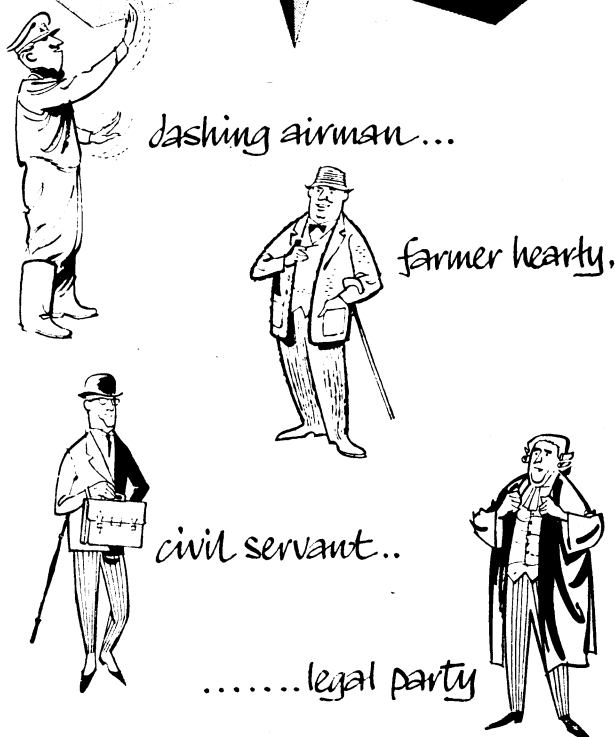 dashing airman...
farmer hearty.
civil servant..
.......legal party